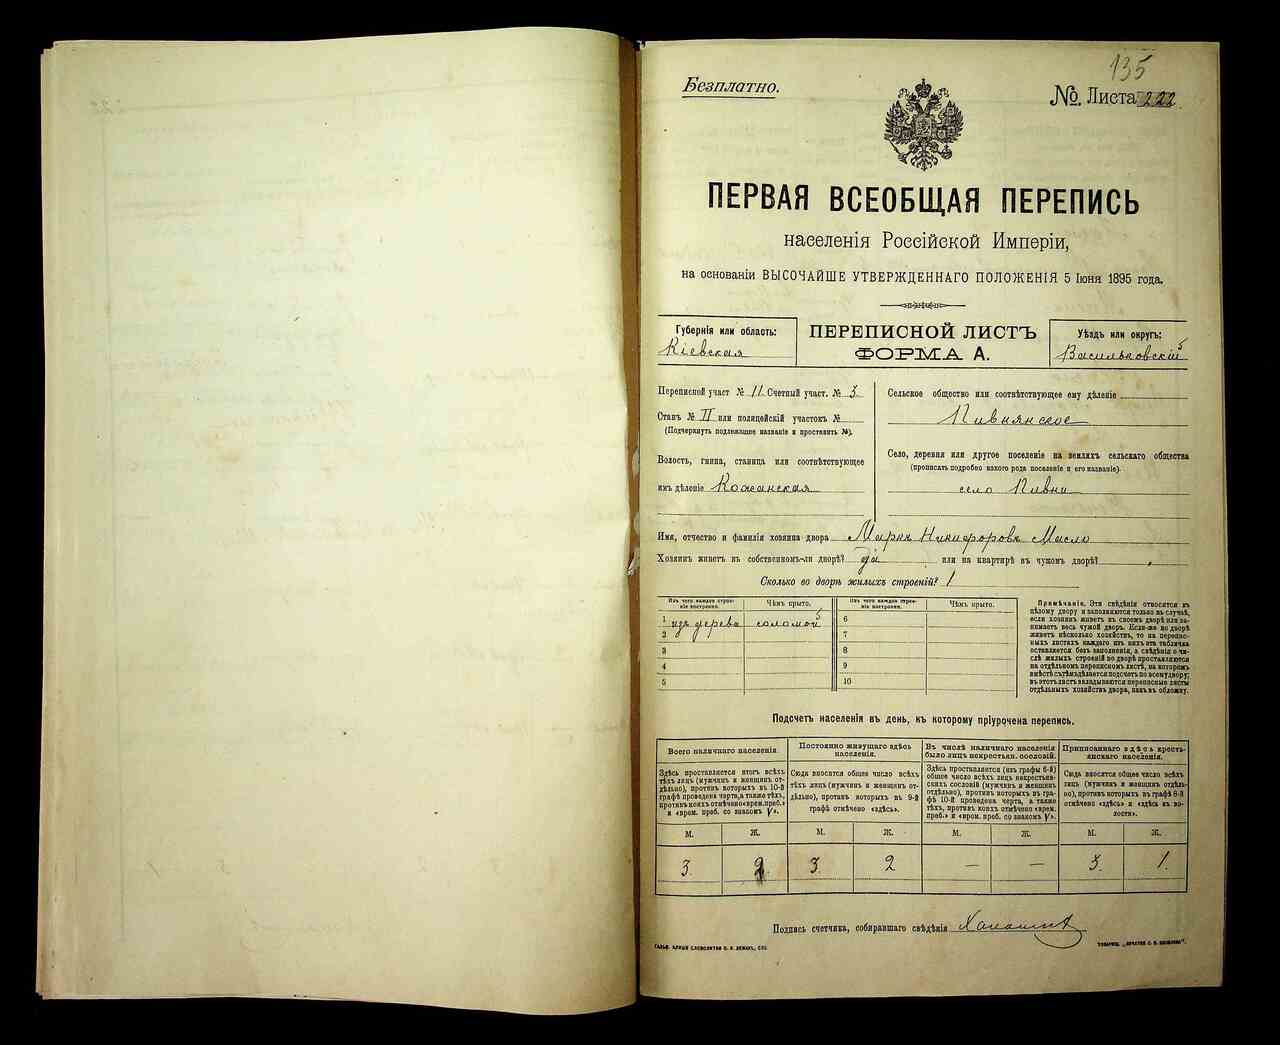 135
Безплатно.
№ Листа 222
ПЕРВАЯ ВСЕОБЩАЯ ПЕРЕПИСЬ
населенія Россійской Имперіи,
на основаніи ВЫСОЧАЙШЕ УТВЕРЖДЕННАГО ПОЛОЖЕНІЯ 5 Іюня 1895 года.
Губернія или область:
Кіевская
ПЕРЕПИСНОЙ ЛИСТЪ
ФОРМА А.
Уѣздъ или округъ:
Васильковскій
Переписной участ № 11 Счетный участ. № 3
Станъ № II или полицейскій участокъ №
(Подчеркнуть подлежащее названіе и проставить №).
Волость, гмина, станица или соотвѣтствующее
имъ дѣленіе Кожанская
Сельское общество или соотвѣтствующее ему дѣленіе
Пивнянское
Село, деревня или другое поселеніе на земляхъ сельскаго общества
(прописать подробно какого рода поселеніе и его названіе).
село Пивни
Имя, отчество и фамилія хозяина двора Маркъ Никифоровъ Масло
Хозяинъ живетъ въ собственномъ-ли дворѣ? да или на квартирѣ въ чужомъ дворѣ?
Сколько во дворѣ жилыхъ строеній? 1
Изъ чего каждое строе-
ніе построено.
Чѣмъ крыто.
Изъ чего каждое строе-
ніе построено.
Чѣмъ крыто.
1 изъ дерева соломой 6
2 7
3 8
4 9
5 10
Примѣчаніе. Эти свѣдѣнія относятся къ
цѣлому двору и заполняются только въ случаѣ,
если хозяинъ живетъ въ своемъ дворѣ или за-
нимаетъ весь чужой дворъ. Если-же во дворѣ
живетъ нѣсколько хозяйствъ, то на перепис-
ныхъ листахъ каждаго изъ нихъ эта табличка
оставляется безъ заполненія, а свѣдѣнія о чи-
слѣ жилыхъ строеній во дворѣ проставляются
на отдѣльномъ переписномъ листѣ, на которомъ
вмѣстѣ съ тѣмъ дѣлается подсчетъ по всему двору;
въ этотъ листъ вкладываются переписные листы
отдѣльныхъ хозяйствъ двора, какъ въ обложку.
Подсчетъ населенія въ день, къ которому пріурочена перепись.
Всего наличнаго населенія.
Здѣсь проставляется итогъ всѣхъ
лицъ (мужчинъ и женщинъ от-
дѣльно), противъ которыхъ въ 10-й
графѣ проведена черта, а также тѣхъ,
противъ коихъ отмѣчено «врем. преб.»
и «врем. преб. со знакомъ V».
Постоянно живущаго здѣсь
населенія.
Сюда вносится общее число всѣхъ
тѣхъ лицъ (мужчинъ и женщинъ от-
дѣльно), противъ которыхъ въ 9-й
графѣ отмѣчено «здѣсь».
Въ числѣ наличнаго населенія
было лицъ некрестьян. сословій.
Здѣсь проставляется (изъ графы 6-й)
общее число всѣхъ лицъ некрестьян-
скихъ сословій (мужчинъ и женщинъ
отдѣльно), противъ которыхъ въ гра-
фѣ 10-й проведена черта, а также
тѣхъ, противъ коихъ отмѣчено «врем.
преб.» и «врем. преб. со знакомъ V».
Приписаннаго здѣсь кресть-
янскаго населенія.
Сюда вносится общее число всѣхъ
лицъ (мужчинъ и женщинъ отдѣль-
но), противъ которыхъ въ графѣ 8-й
отмѣчено «здѣсь» и «здѣсь въ во-
лости».
М. Ж. М. Ж. М. Ж. М. Ж.
3. 2 3. 2 — — 3. 1.
Подпись счетчика, собиравшаго свѣдѣнія